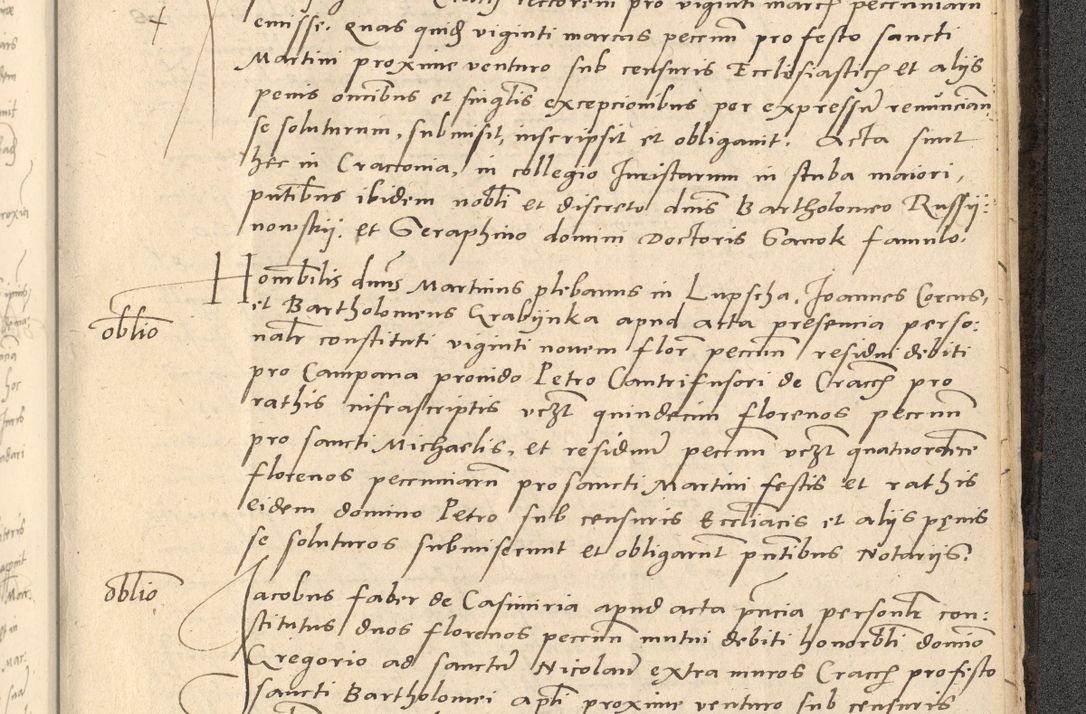 rectorem pro viginti marcis pecuniarum
emisse. Quas quidem viginti marcas pecuniarum pro festo sancti
Martini proxime venturo sub censuris Ecclesiasticis et alijs
penis omnibus et singulis excepcionibus per expressum renuncian:
se soluturum, submisit, inscripsit et obligauit. Acta sunt
hec in Cracouia, in collegio Juristarum in stuba maiori,
pntibus ibidem nobli et discreto dnis Bartholomeo Russij:
nowskij. et Seraphino domini Doctoris Gawok famulo.
Honorabilis dnus Martinus plebanus in Lupscha, Joannes Corcus,
et Bartholomeus Grabijnka apud acta presencia perso:
oblio
nalr constituti viginti nouem flor pecuni residui debiti
pro Campana prouido Petro Cantrifusori de Cracch pro
rathis infrascriptis vczt quindecim florenos pecuni
pro sancti Michaelis, et residuum pecuni vczt quatuordecim
florenos pecuniarum pro sancti Martini festis et rathis
eidem domino Petro sub censuris Eccliacis et alijs penis
se soluturos submiserunt et obligarunt pntibus Notarijs.
oblio
Jacobus faber de Casimiria apud acta pncia personlr con:
stitutus duos florenos pecuni mutui debiti honorbli domno
Gregorio ad sanctum Nicolaum extra muros Cracch pro festo
sancti Bartholomei apli proxime venturo sub censuris